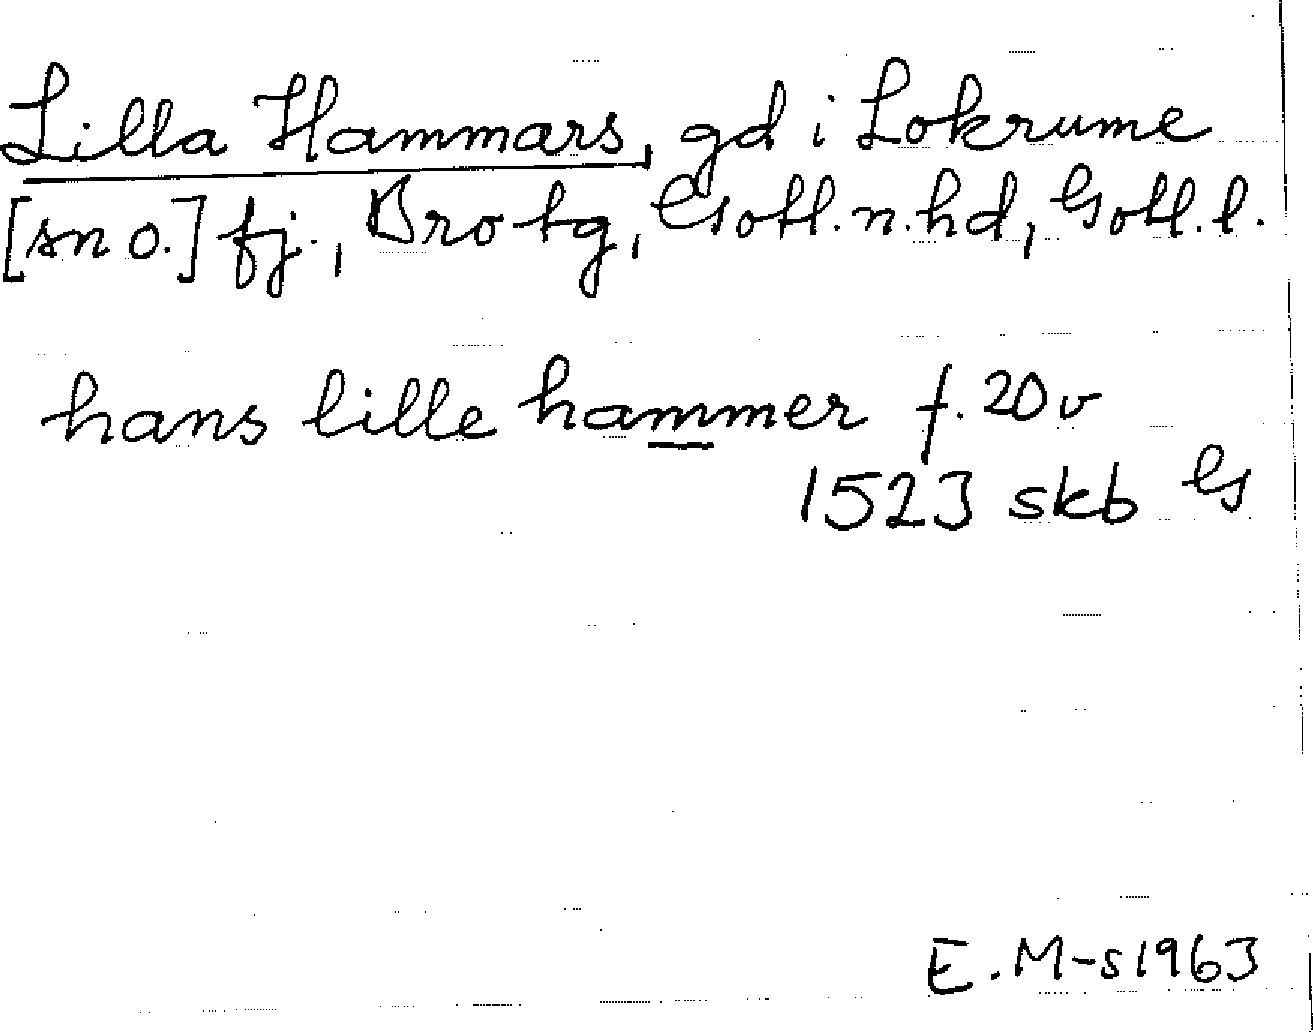 Lilla Hammars, gd i Lokrume
[sn o.] fj., Bro tg, Gotl. n. hd, Gotl. l.
hans lille hammer f. 20 v
1523 skb G
E. M-s 1963